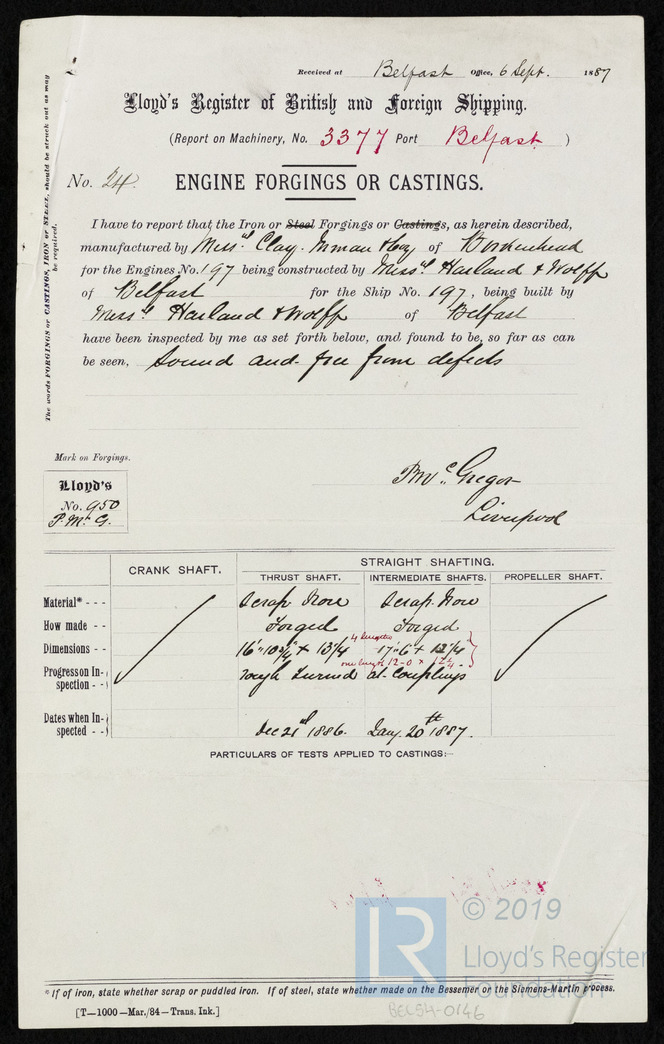 Received at Belfast Office, 6 Sept. 1887
Lloyd's Register of British and Foreign Shipping.
(Report on Machinery, No. 3377 Port Belfast.)
No. 24. ENGINE FORGINGS OR CASTINGS.
The words FORGINGS or CASTINGS, IRON or STEEL, should be struck out as may
be required.
I have to report that the Iron or Steel Forgings or Castings, as herein described,
manufactured by Mess.rs Clay. Inman & Coy of Birkenhead
for the Engines No. 197 being constructed by Mess.rs Harland & Wolff
of Belfast for the Ship No. 197, being built by
Mess.rs Harland & Wolff of Belfast
have been inspected by me as set forth below, and found to be, so far as can
be seen, sound and free from defects
Mark on Forgings.
Lloyd's
No. 950
P. McG.
P. McGregor
Liverpool
CRANK SHAFT. STRAIGHT SHAFTING.
THRUST SHAFT. INTERMEDIATE SHAFTS. PROPELLER SHAFT.
Material* - - - Scrap Iron Scrap. Iron
How made - - Forged Forged
4 lengths
Dimensions - - 16'-10¾" + 13¼ 17'-6" + 12¼
one length 12-0 × 12¼
Progress on In-
spection - - rough turned at couplings
Dates when In-
spected - - Dec 21st 1886. Jany. 20th 1887.
PARTICULARS OF TESTS APPLIED TO CASTINGS:—
© 2019
LR
Lloyd's Register
Foundation
*If of iron, state whether scrap or puddled iron. If of steel, state whether made on the Bessemer or the Siemens-Martin process.
[T—1000—Mar./84—Trans. Ink.]
BEL54-0146